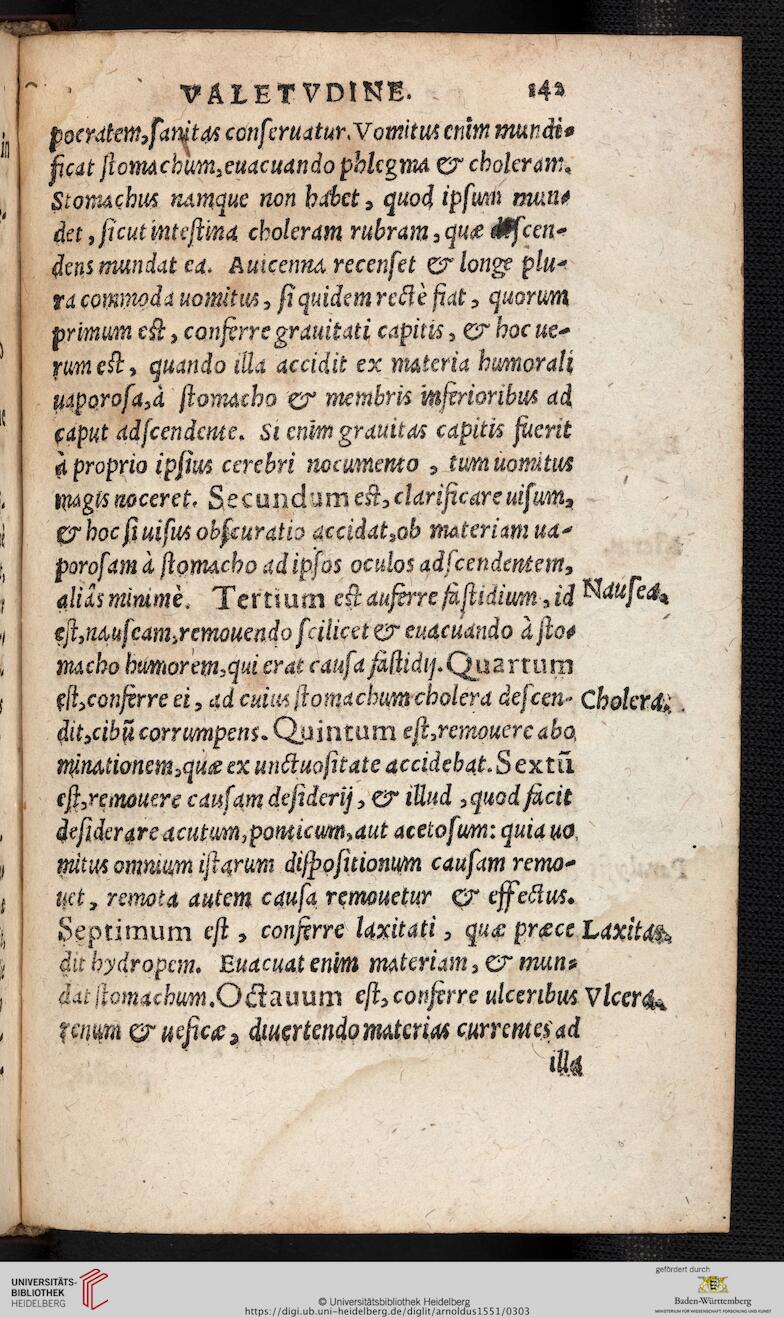 VALETVDINE. 142
pocratem,ſanitas conſeruatur.Vomitus enim mundi-
ficat ſtomachum,euacuando phlegma & choleram.
Stomachus namque non habet, quod ipſum mun-
det, ſicut inteſtina choleram rubram, quæ deſcen-
dens mundat ea. Auicenna recenſet & longe plu-
ra commoda uomitus, ſi quidem rectè fiat, quorum
primum eſt, conferre grauitati capitis, & hoc ue-
rum eſt, quando illa accidit ex materia humorali
uaporoſa,à ſtomacho & membris inferioribus ad
caput adſcendente. Si enim grauitas capitis fuerit
à proprio ipſius cerebri nocumento, tum uomitus
magis noceret. Secundum eſt, clarificare uiſum,
& hoc ſi uiſus obſcuratio accidat,ob materiam ua-
poroſam à ſtomacho ad ipſos oculos adſcendentem,
aliâs minimè. Tertium eſt auferre faſtidium, id Nauſea.
eſt,nauſeam,remouendo ſcilicet & euacuando à ſto-
macho humorem,qui erat cauſa faſtidij. Quartum
eſt,conferre ei, ad cuius ſtomachum cholera deſcen- Cholera.
dit,cibũ corrumpens. Quintum eſt,remouere abo
minationem,quæ ex unctuoſitate accidebat. Sextũ
eſt,remouere cauſam deſiderij, & illud ,quod facit
deſiderare acutum,ponticum,aut acetoſum: quia uo
mitus omnium iſtarum diſpoſitionum cauſam remo-
uet, remota autem cauſa remouetur & effectus.
Septimum eſt, conferre laxitati, quæ præce Laxitas.
dit hydropem. Euacuat enim materiam, & mun-
dat ſtomachum.Octauum eſt, conferre ulceribus Vlcera.
renum & ueſicæ, diuertendo materias currentes ad
illa
UNIVERSITÄTS-
BIBLIOTHEK
HEIDELBERG
© Universitätsbibliothek Heidelberg
https://digi.ub.uni-heidelberg.de/diglit/arnoldus1551/0303
gefördert durch
Baden-Württemberg
MINISTERIUM FÜR WISSENSCHAFT, FORSCHUNG UND KUNST